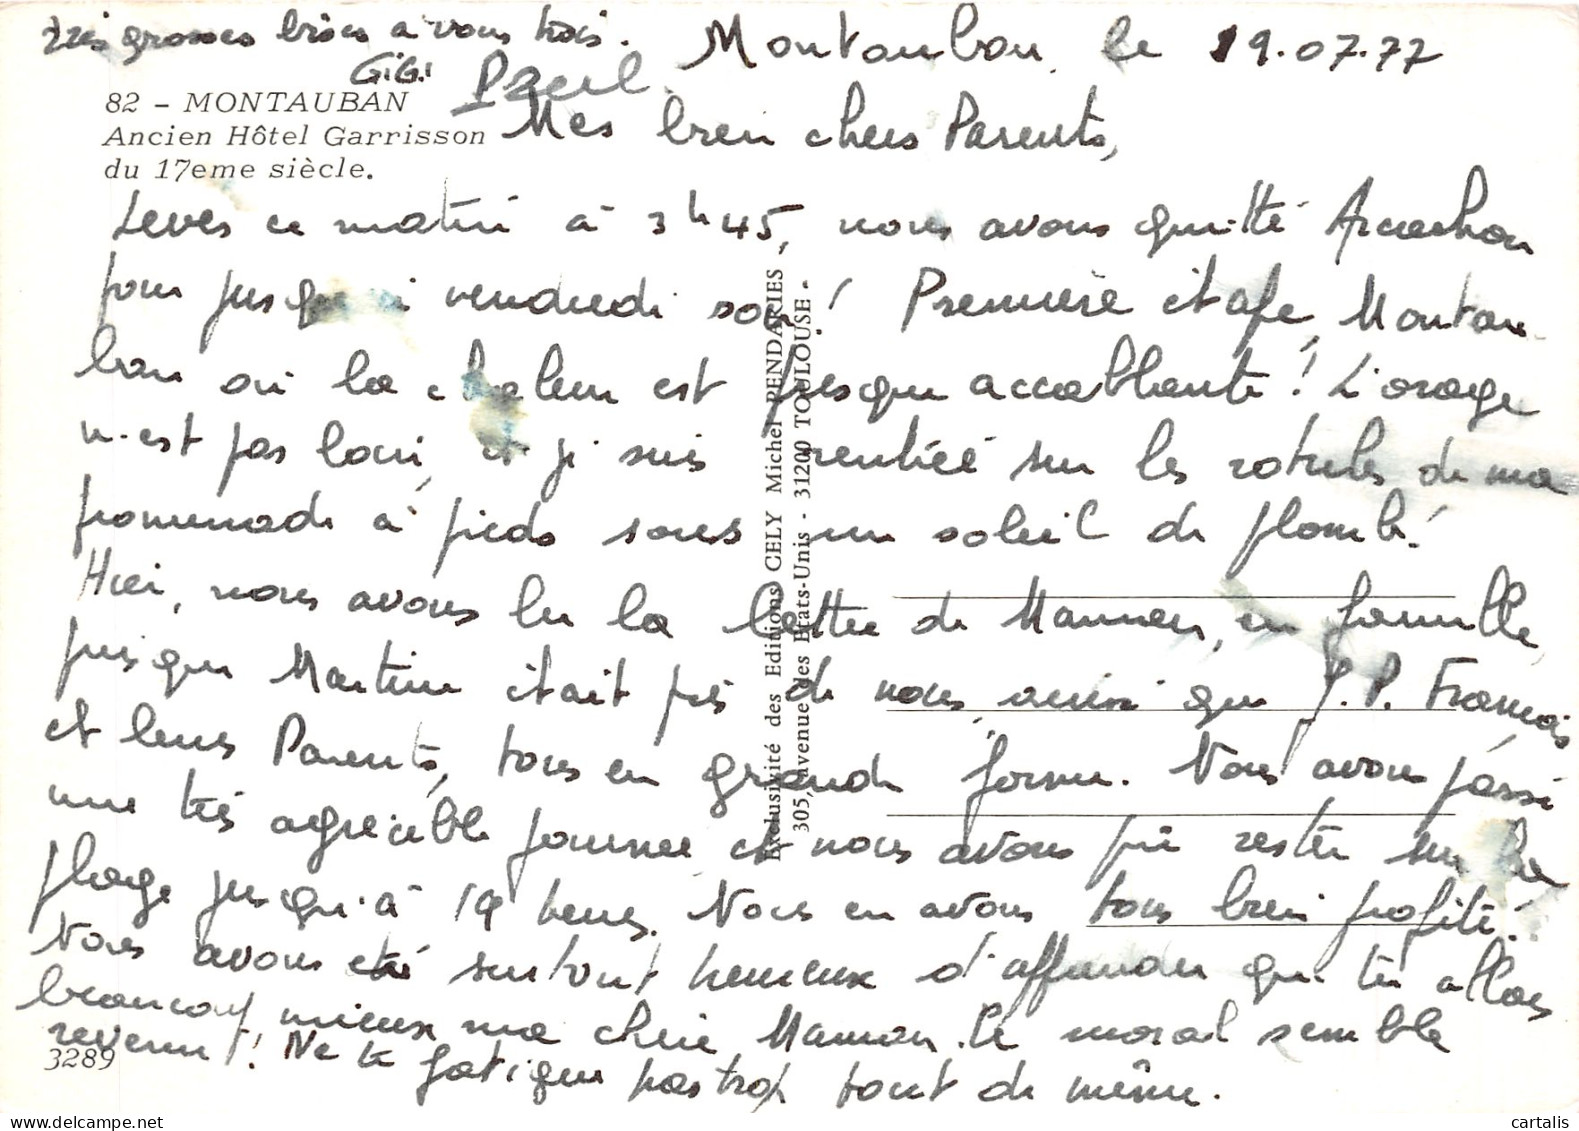 Très grosses bises à vous trois.
GiGi
Montauban, le 19.07.77
82 - MONTAUBAN
Ancien Hôtel Garrisson
du 17eme siècle.
Mes bien chers Parents,
Levés ce matin à 3h45, nous avons quitté Arcachon
pour jusqu'à vendredi soir! Première étape, Montau
ban où la chaleur est presque accablante! L'orage
n'est pas loin, et je suis rentrée sur les rotules de ma
promenade à pieds sous un soleil de plomb!
Hier, nous avons lu la lettre de Maman, en famille,
puisque Martine était près de nous, ainsi que J.P. François
et leurs Parents, tous en grande forme. Nous avons passé
une très agréable journée et nous avons pû rester sur la
plage jusqu'à 19 heures. Nous en avons tous bien profité!
Nous avons été surtout heureux d'apprendre que tu allais
beaucoup mieux ma chérie Maman. Le moral semble
revenir! Ne te fatigue pas trop tout de même.
3289
Exclusivité des Editions CELY Michel PENDARIES
305, avenue des Etats-Unis - 31200 TOULOUSE -
cartalis